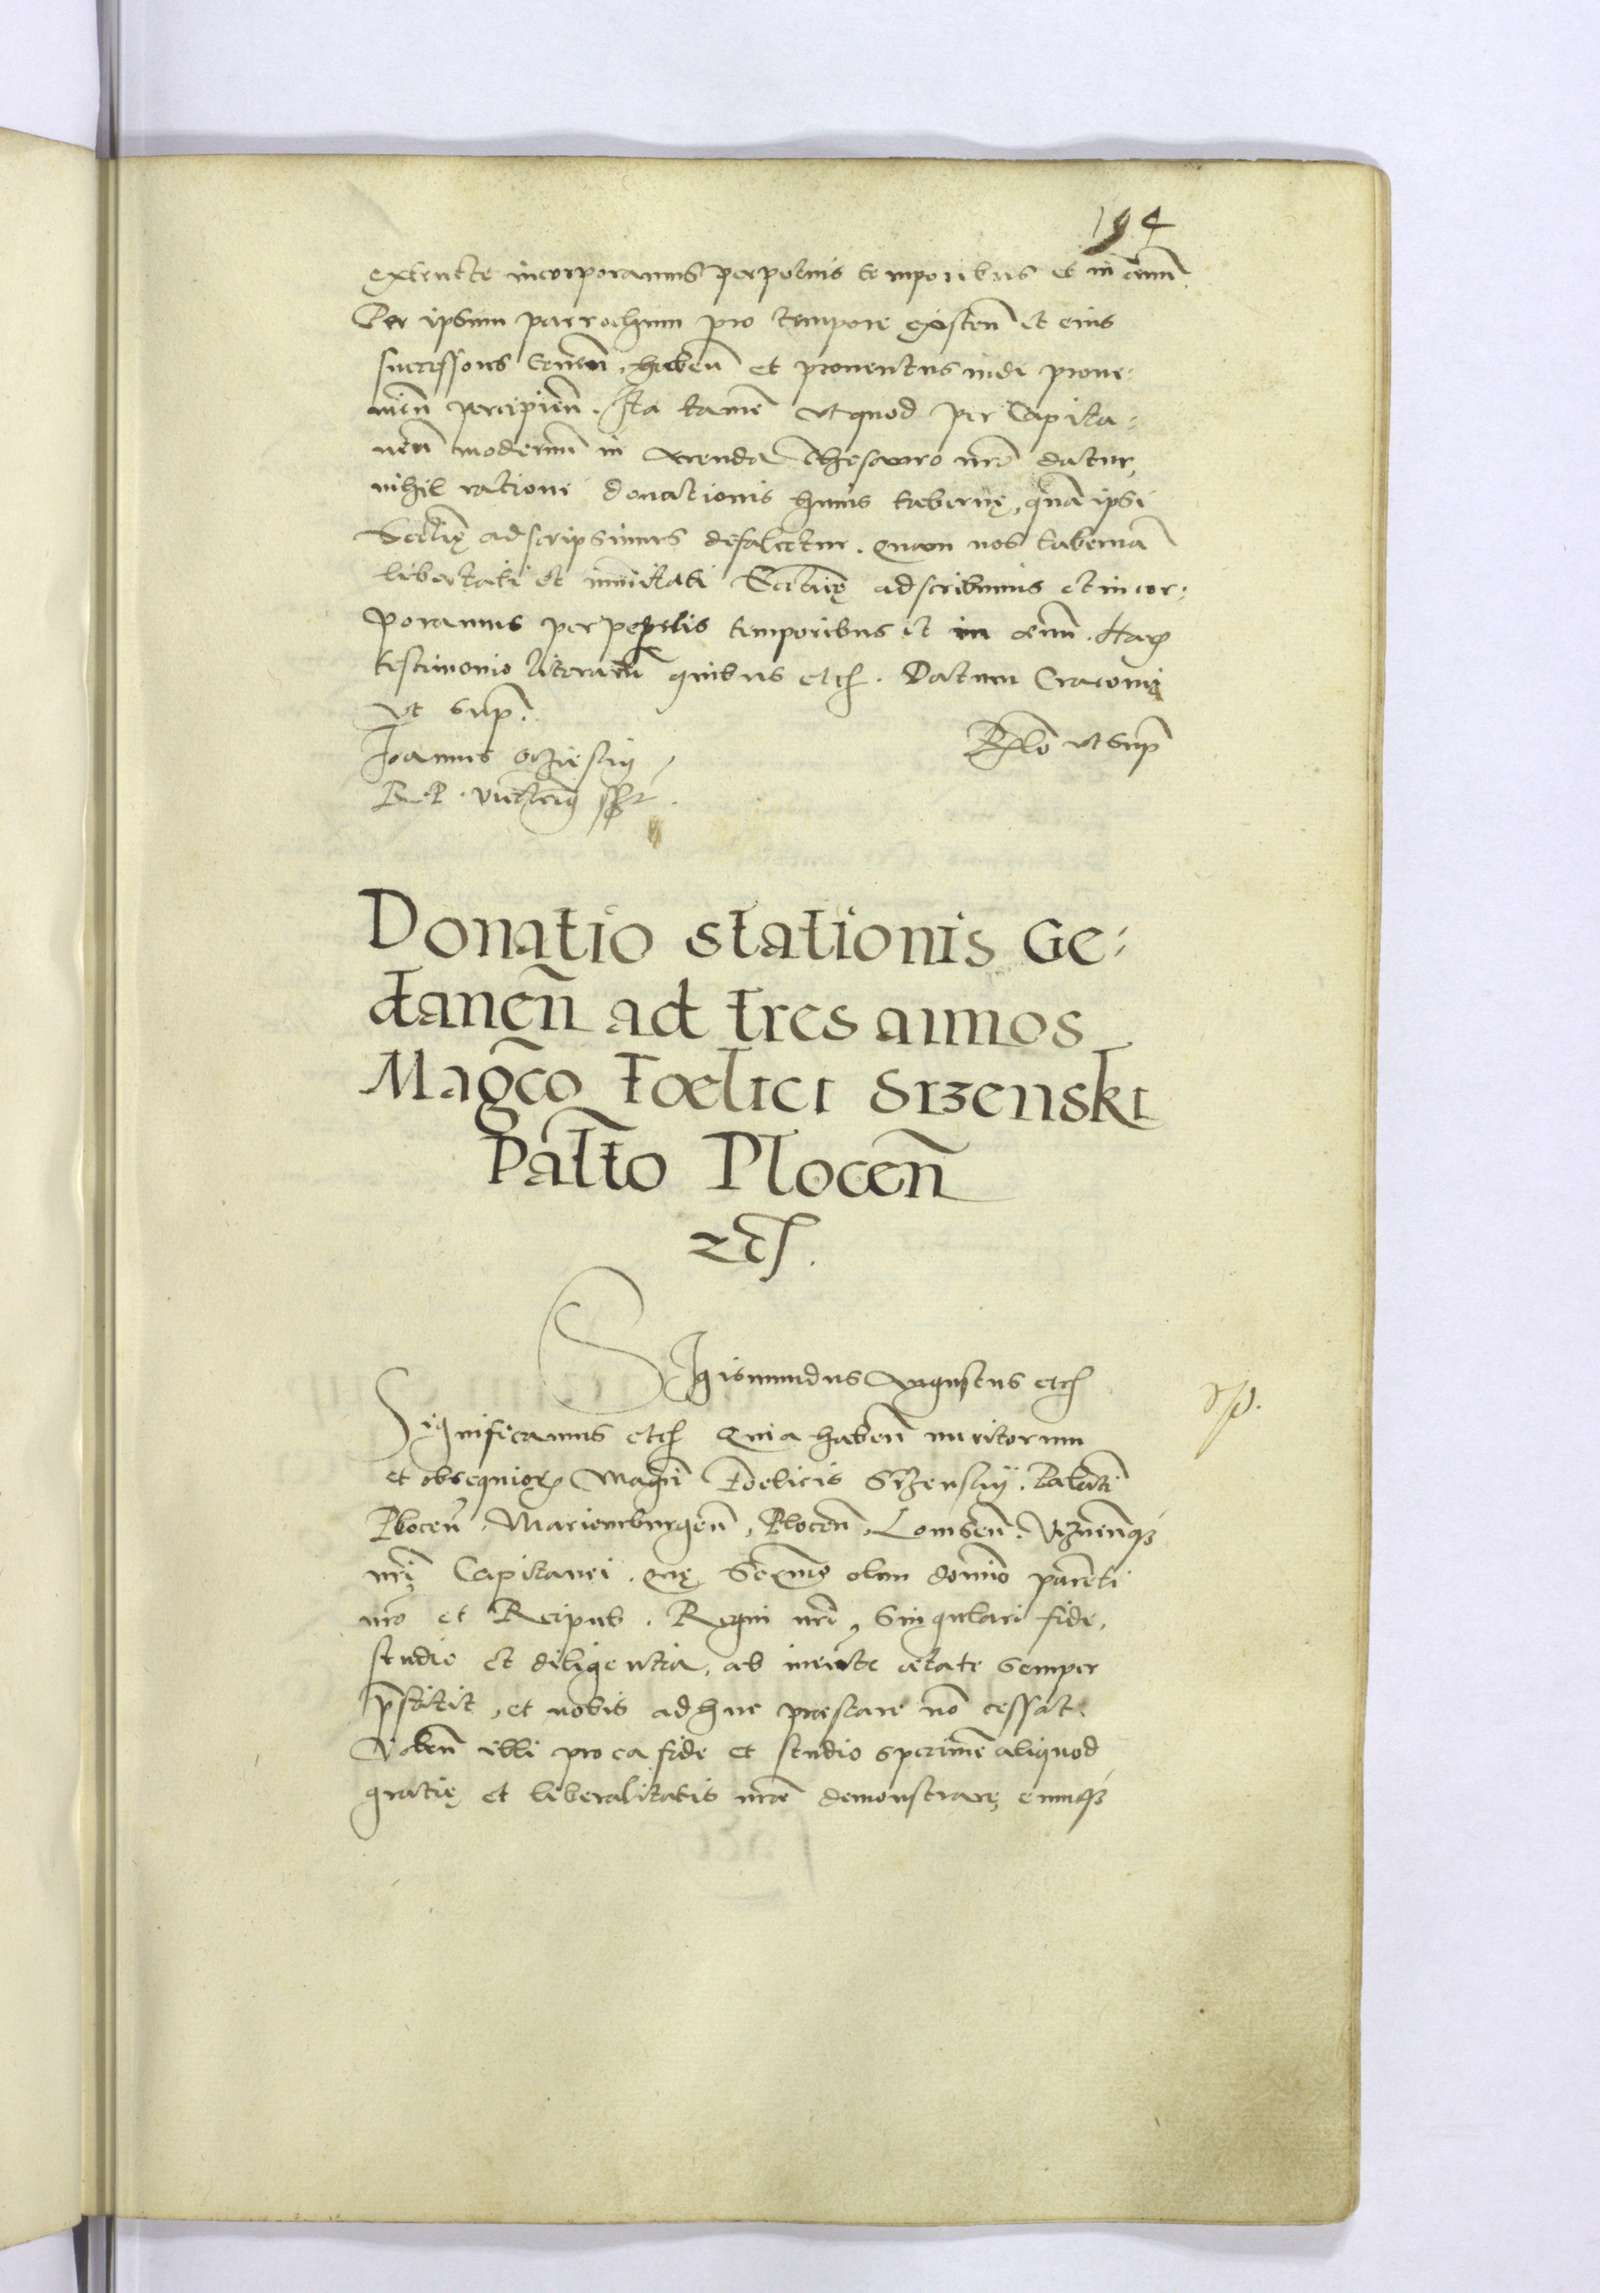 194
extructe incorporamus perpetuis temporibus et in ęuum
Per ipsum parrochum pro tempore existen̄ et eius
successores tenen̄, haben̄ et prouentus inde proue:
nien̄ percipien̄. Ita tamē vt quod per Capita:
neū modernū in arenda Thesauro nr̄o datur,
nihil ratione donationis huius tabernę, quā ipsi
Ecclię adscripsimus defalcetur. quam nos tabernā
libertati et im̄unitati Ecclię adscribimus et incor:
poramus perpetuis temporibus et in ęuum. Harꝝ
testimonio literarū quibus etc. Datum Cracouię
vt supͣ.
Rel̄o vt supͣ
Joannes Oczieskij
R. P. Vicecanc̄ ssp̄t.
Donatio stationis Ge:
danen̄ ad tres annos
Magc̄o Foelici Srzenski
Palt̄o Plocen̄
etc.
Sigismundus Augustus etc
Significamus etc Quia haben̄ meritorum
et obsequiorꝝ Magci Foelicis Srzenskij. Palatī
Plocen̄. Marienburgen̄, Plocen̄, Lomzen̄. Viznen̄qꝫ
nr̄i Capitanei. quę Serm̄o olim domino parenti
nr̄o et Reipub. Regni nr̄i, singulari fide,
studio et diligentia, ab ineunte ętate semper
p̄stitit, et nobis adhuc prestare nō cessat.
Volen̄ illi pro ea fide et studio specimē aliquod
gratię et liberalitatis nr̄ae demonstrare, eumqꝫ